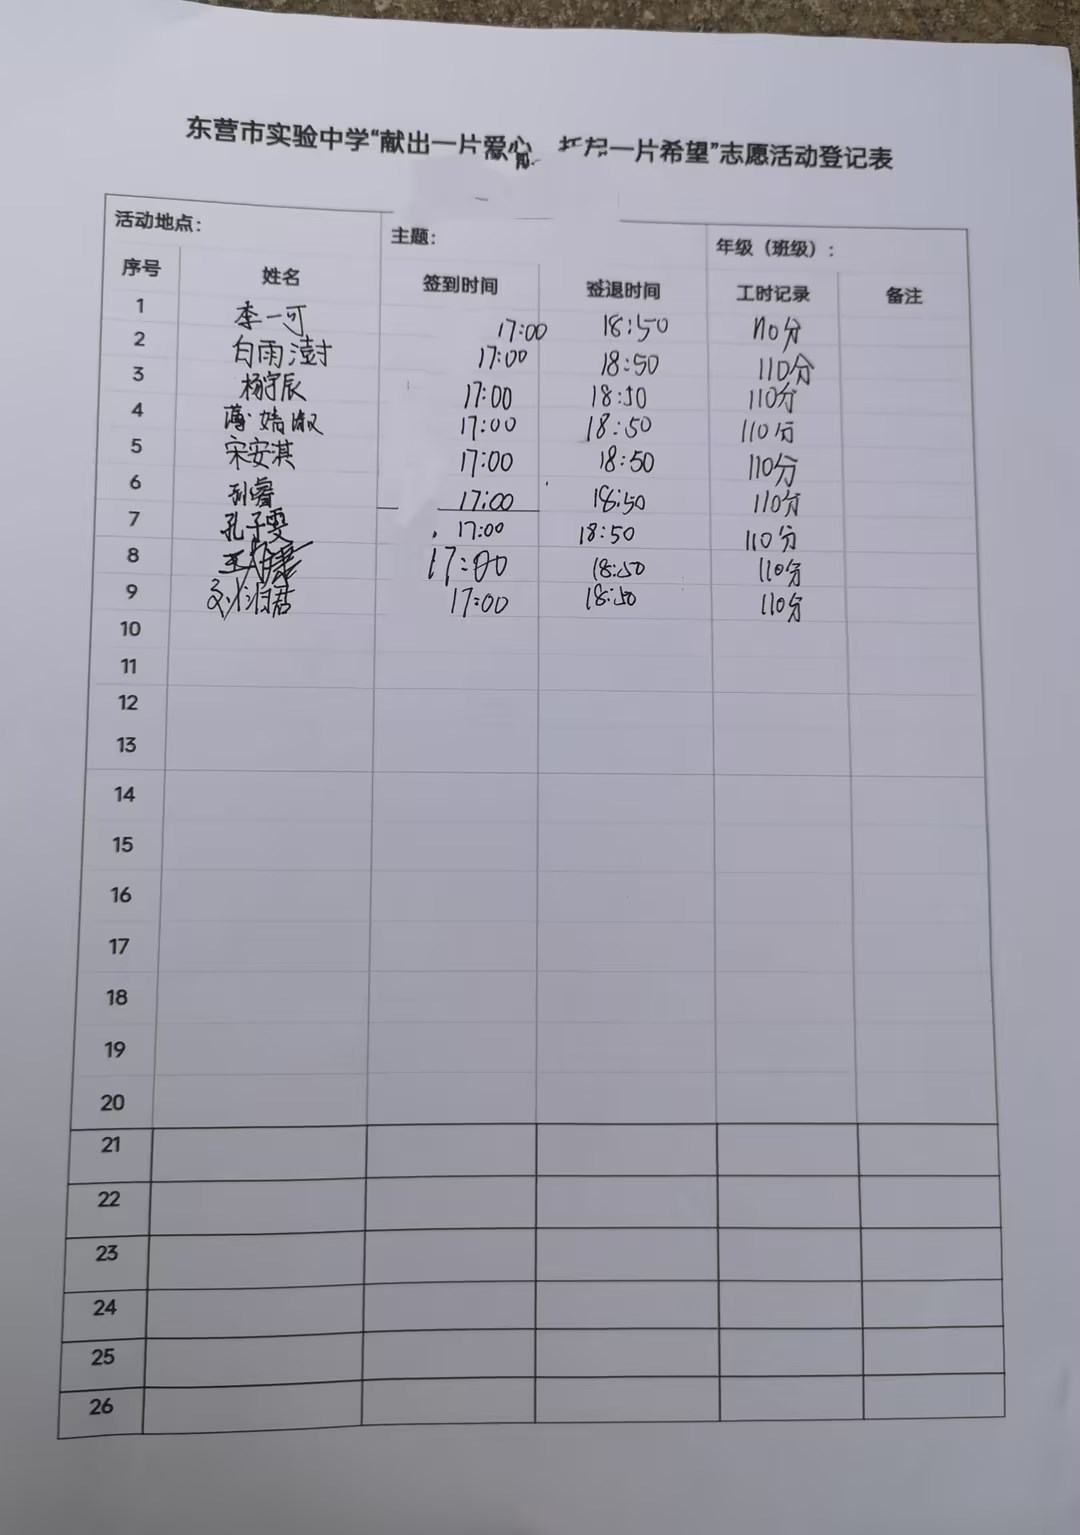 东营市实验中学“献出一片爱心 托起一片希望”志愿活动登记表
活动地点： 主题： 年级（班级）：
序号 姓名 签到时间 签退时间 工时记录 备注
1 李一可 17:00 18:50 110分
2 白雨澍 17:00 18:50 110分
3 杨宇辰 17:00 18:50 110分
4 薄婧淑 17:00 18:50 110分
5 宋安淇 17:00 18:50 110分
6 刘睿 17:00 18:50 110分
7 孔子雯 17:00 18:50 110分
8 17:00 18:50 110分
9 17:00 18:50 110分
10
11
12
13
14
15
16
17
18
19
20
21
22
23
24
25
26